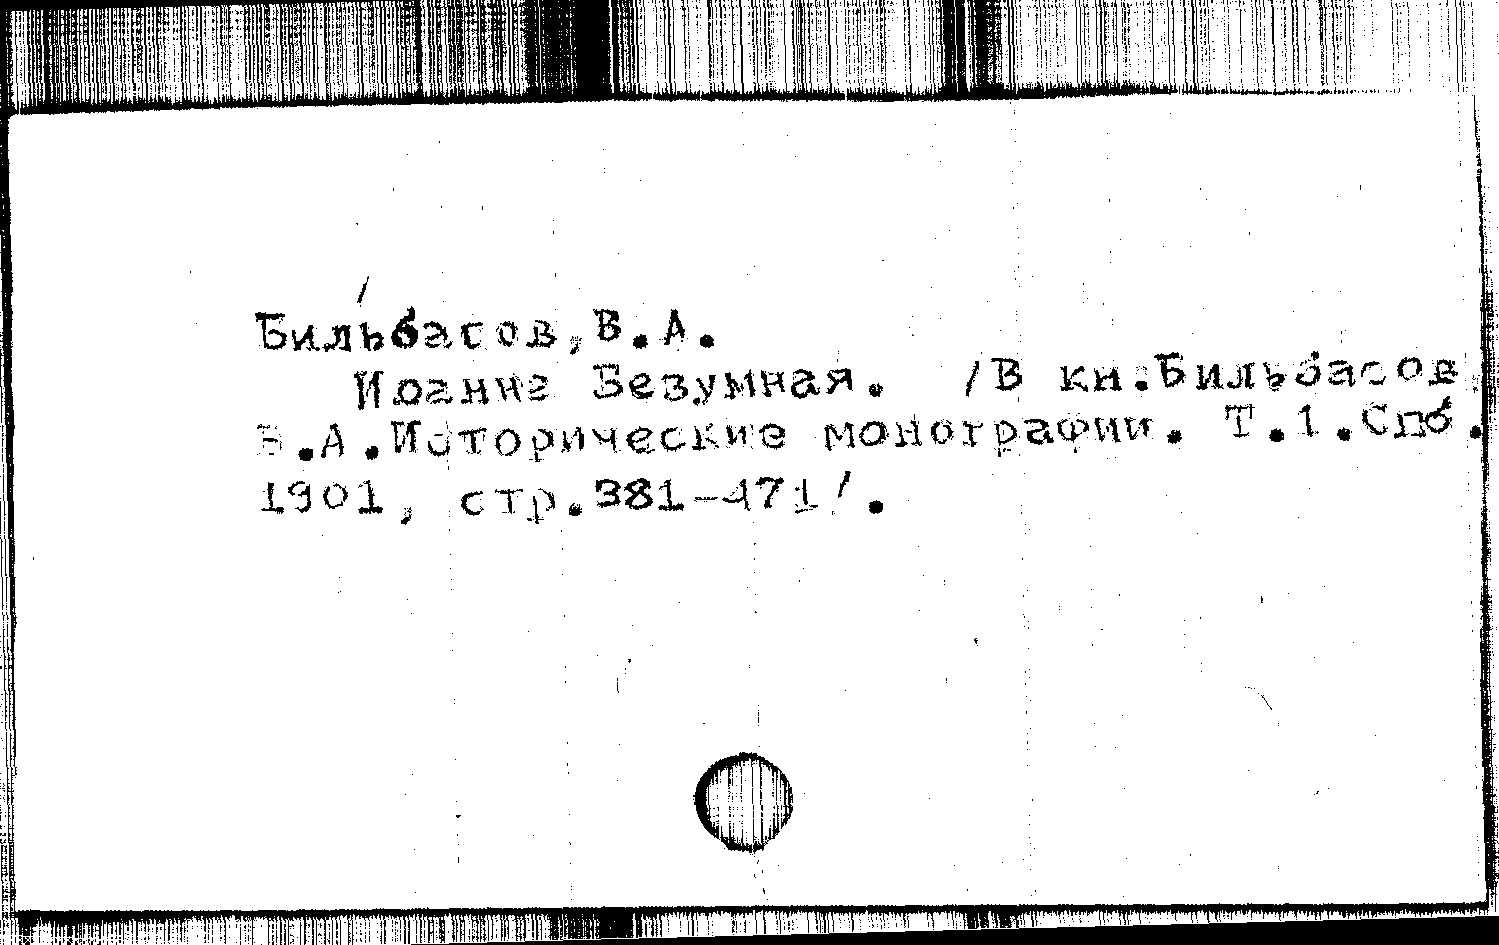 Бильбасов,В.А.
Иоанна Безумная. /В кн.Бильбасов
В.А.Исторические монографии. Т.1.Спб.
1901, стр.381-471/.